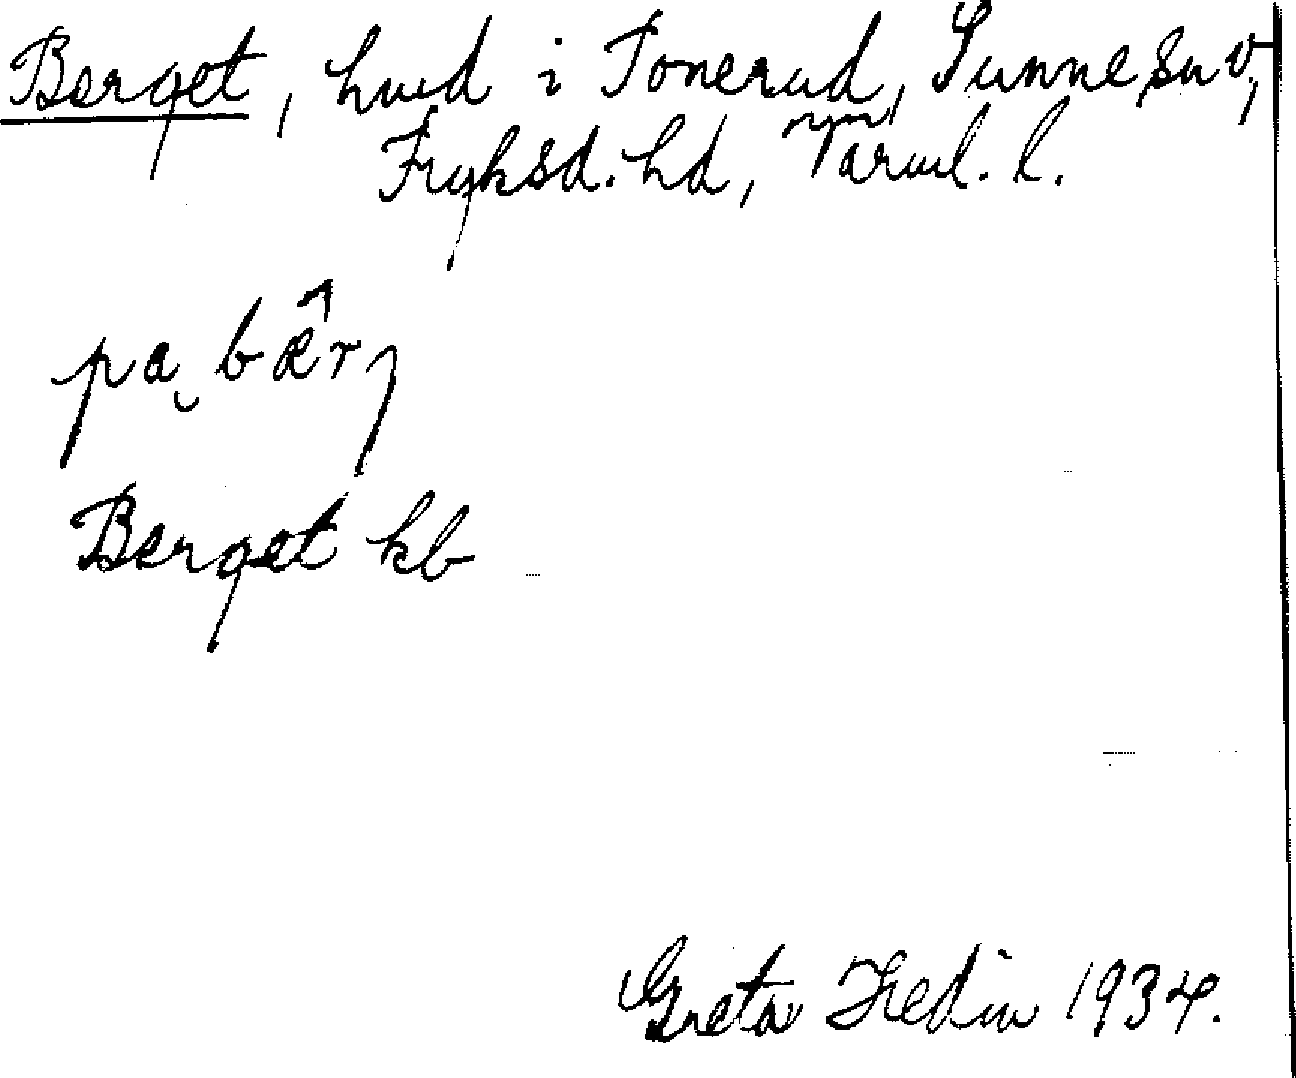 Berget, hmd i Tonerud, Sunne sn v,
Fryksd. hd, Värml. l.
pa bær
Berget kb
Greta Hedin 1934.